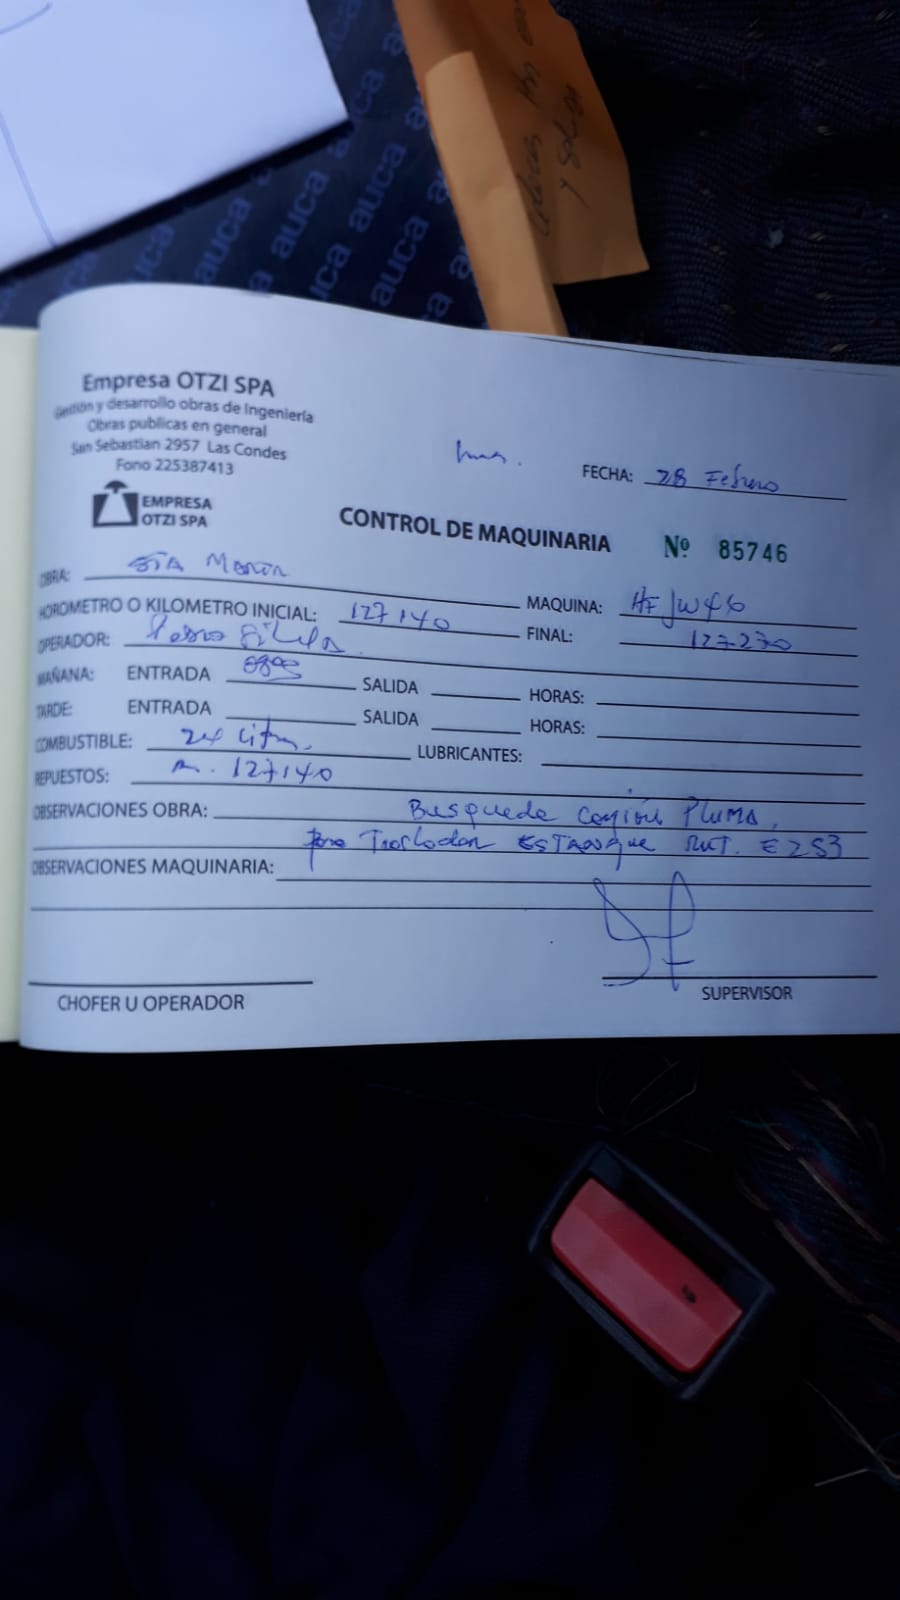 auca auca auca
Empresa OTZI SPA
Gestión y desarrollo obras de Ingeniería
Obras publicas en general
San Sebastian 2957 Las Condes
Fono 225387413
EMPRESA
OTZI SPA
FECHA: 28 Febrero
CONTROL DE MAQUINARIA Nº 85746
OBRA: STA MARTA
MAQUINA:
HOROMETRO O KILOMETRO INICIAL: 127140 FINAL: 127270
OPERADOR: Pedro
MAÑANA: ENTRADA SALIDA HORAS:
TARDE: ENTRADA SALIDA HORAS:
COMBUSTIBLE: LUBRICANTES:
REPUESTOS: 127140
OBSERVACIONES OBRA: Busqueda Camión Pluma,
para Trasladar ESTANque RUT. E 253
OBSERVACIONES MAQUINARIA:
CHOFER U OPERADOR
SUPERVISOR